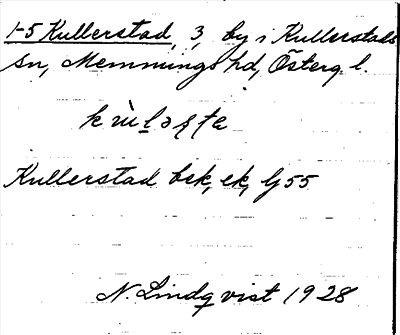 1-5 Kullerstad, 3, by i Kullerstads
sn, Memmings hd, Österg l.
Kullerstad bsk, ek, Gj 55
N. Lindqvist 1928